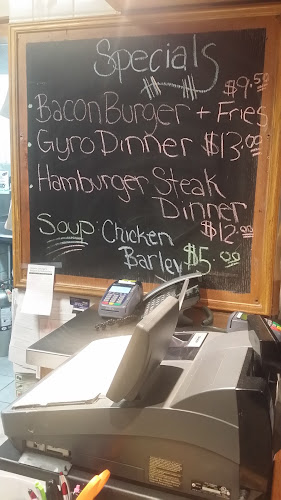 Specials
$9.50
• Bacon Burger + Fries
• Gyro Dinner $13.00
• Hamburger Steak
Dinner
$12.00
Soup: Chicken
Barley $5.00